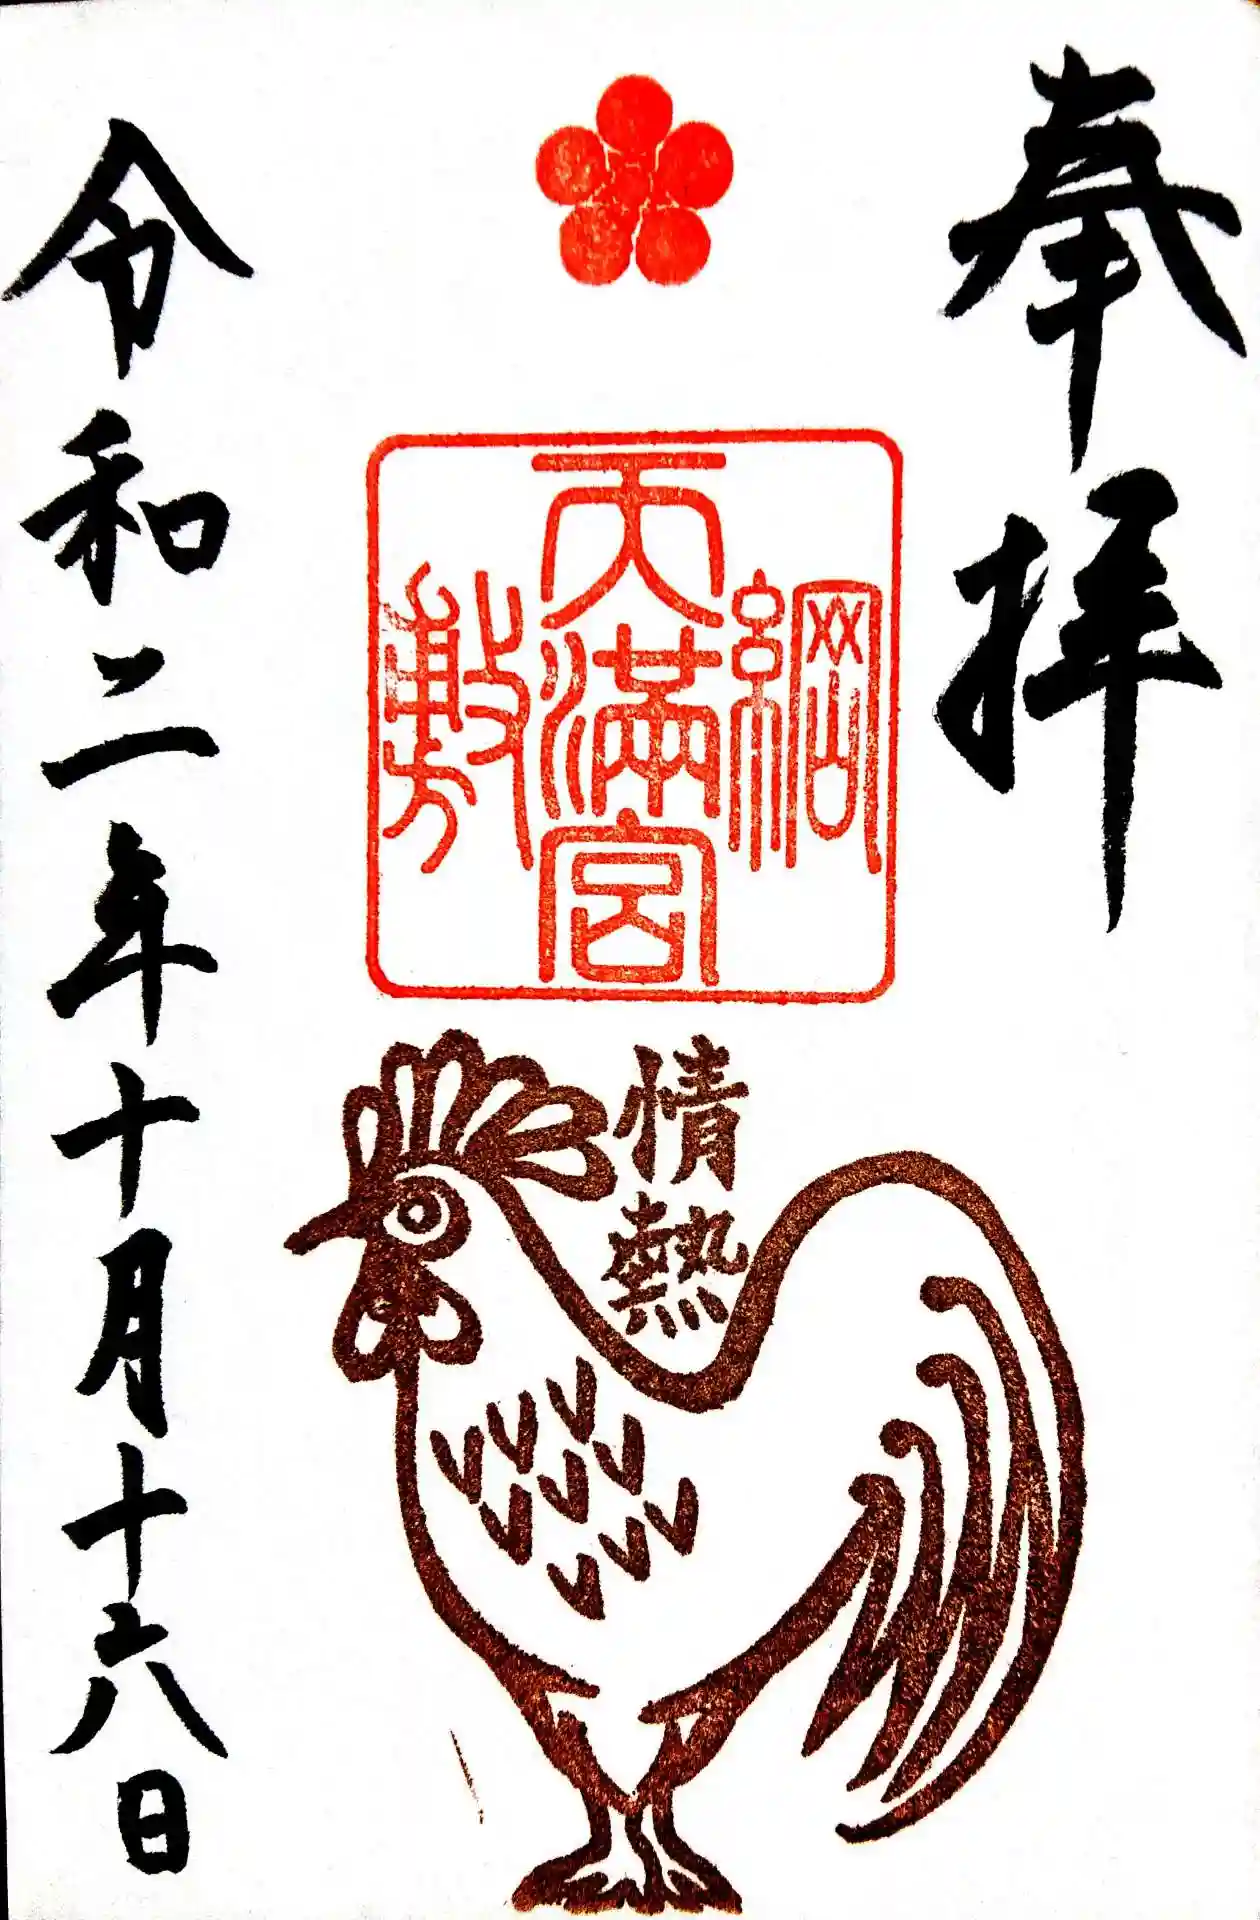 奉拝
綱敷
天満宮
情熱
令和二年十月十六日